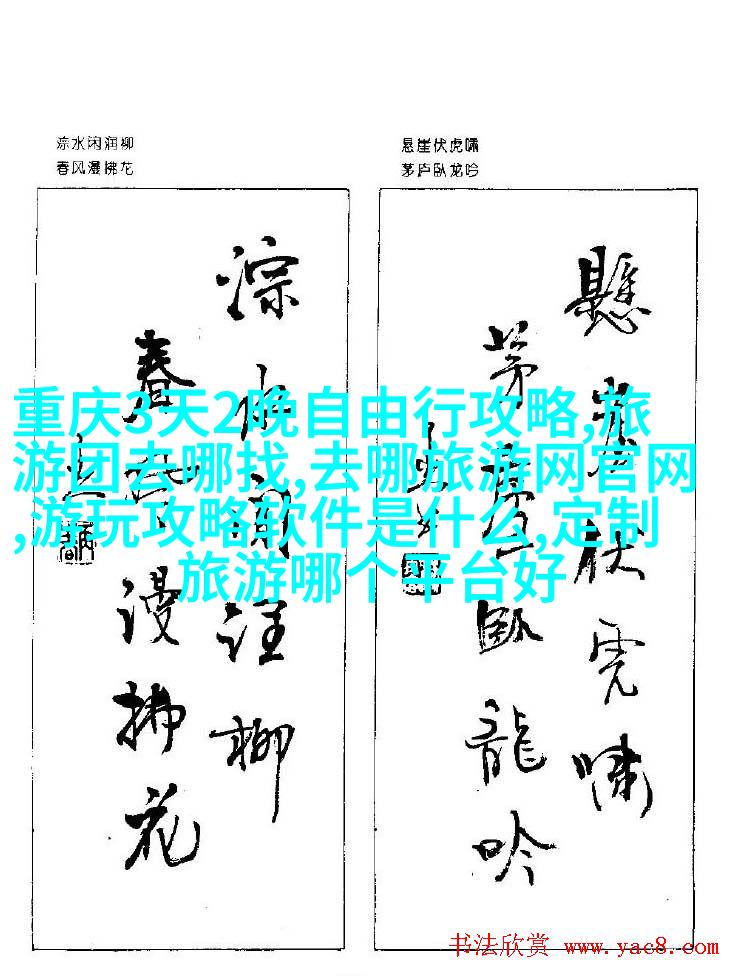 淙水闲润柳
春风漫拂花
悬崖伏虎啸
茅庐卧龙吟
淙水闲润柳
春风漫拂花
懸崖伏虎嘯
茅廬臥龍吟
重庆3天2晚自由行攻略,旅
游团去哪找,去哪旅游网官网
,游玩攻略软件是什么,定制
旅游哪个平台好
书法欣赏 www.yac8.com